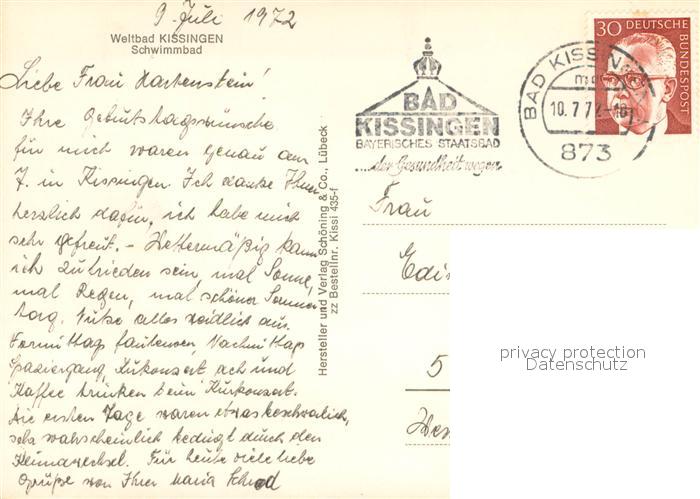 9 Juli 1972
Weltbad KISSINGEN
Schwimmbad
Liebe Frau Hartenstein!
Ihre Geburtstagswünsche
für mich waren genau am
7. in Kissingen. Ich danke Ihnen
herzlich dafür, ich habe mich
sehr gefreut. – Wettermäßig kann
ich zufrieden sein, mal Sonne,
mal Regen, mal schöner Sommer
tag. Nutze alles weidlich aus.
Vormittag faulenzen, Nachmittag
Spaziergang Kurkonzert, ach und
Kaffee trinken beim Kurkonzert.
Die ersten Tage waren etwas beschwerlich,
wahrscheinlich bedingt durch den
Klimawechsel. Für heute viele liebe
Grüße von Ihrer Maria
Hersteller und Verlag Schöning & Co., Lübeck
zz Bestellnr. Kissi 435-f
BAD
KISSINGEN
BAYERISCHES STAATSBAD
...der Gesundheit wegen
BAD KISSINGEN
10.7.72-18
873
30 DEUTSCHE
BUNDESPOST
Frau
5
privacy protection
Datenschutz